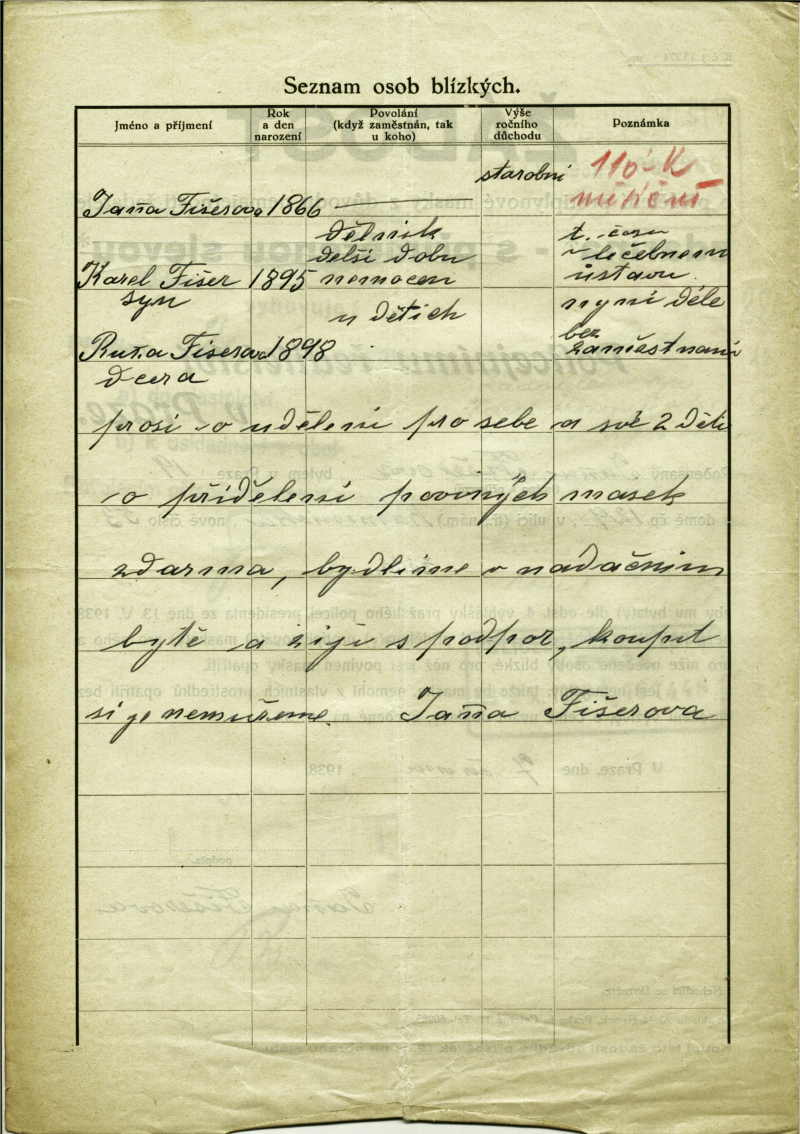 Seznam osob blízkých.
Jméno a příjmení
Rok
a den
narození
Povolání
(když zaměstnán, tak
u koho)
Výše
ročního
důchodu
Poznámka
starobní
110·- K
měsíčně
Jaňa Fišerova 1866
dělnik
delší dobu
nemocen
t. času
v léčebnem
ústavu.
Karel Fišer 1895
syn
u dětich
nyní déle
bez
zaměstnaní
Ruža Fišerova 1898
dcera
prosí o udělení pro sebe a své 2 děti
o přidělení poviných masek
zdarma, bydlíme v nadačním
bytě a žiji s podpor, koupit
si je nemůžeme. Jaňa Fišerova